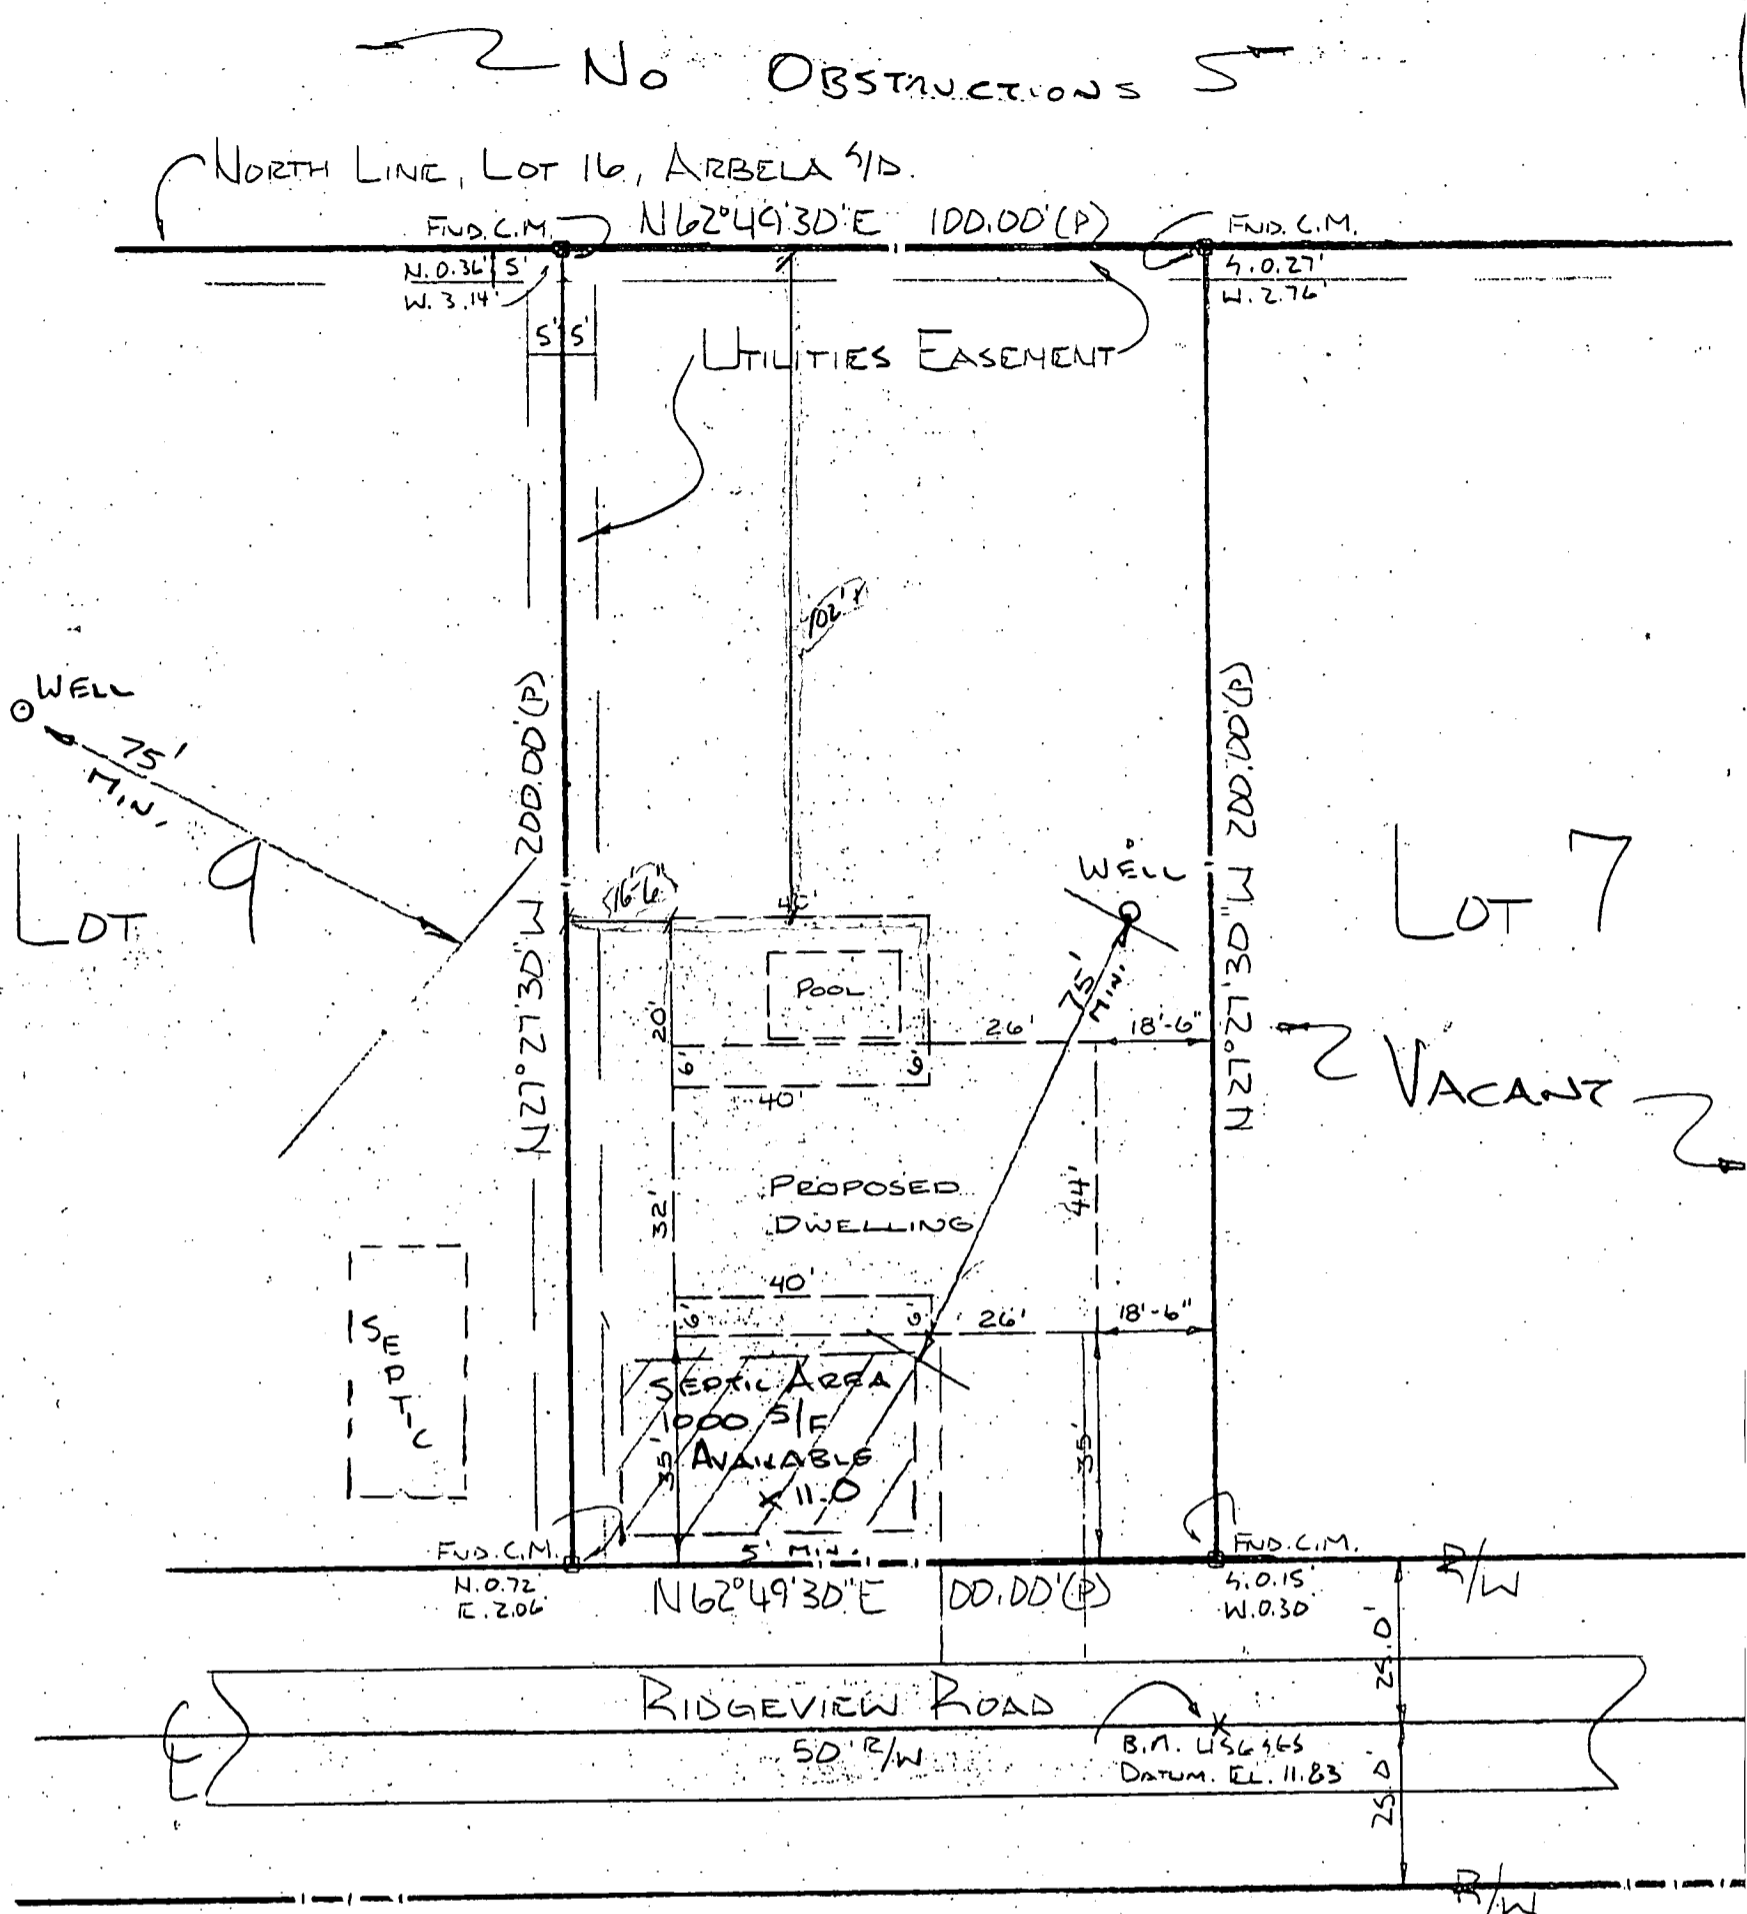 No OBSTRUCTIONS
NORTH LINE, LOT 16, ARBELA S/D.
FND. C.M.
N62°49'30"E 100.00'(P)
FND. C.M.
N. 0.36'
5'
W. 3.14'
S. 0.27'
W. 2.76'
5' 5'
UTILITIES EASEMENT
102'±
WELL
75'
MIN.
LOT 9
N27°27'30"W 200.00'(P)
N27°27'30"W 200.00'(P)
WELL
LOT 7
16'-6"
POOL
75'
MIN.
20'
26'
18'-6"
6'
6'
40'
VACANT
PROPOSED
DWELLING
32'
44'
40'
6'
6'
26'
18'-6"
SEPTIC
SEPTIC AREA
1000 S/F
AVAILABLE
x 11.0
35'
35'
5' MIN.
FND. C.M.
N. 0.72'
E. 2.06'
N62°49'30"E 00.00'(P)
FND. C.M.
S. 0.15'
W. 0.30'
R/W
25.0'
RIDGEVIEW ROAD
50' R/W
B.M. USC&GS
DATUM. EL. 11.83
25.0'
R/W